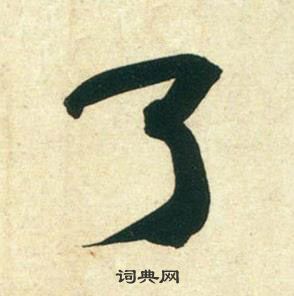 了
词典网